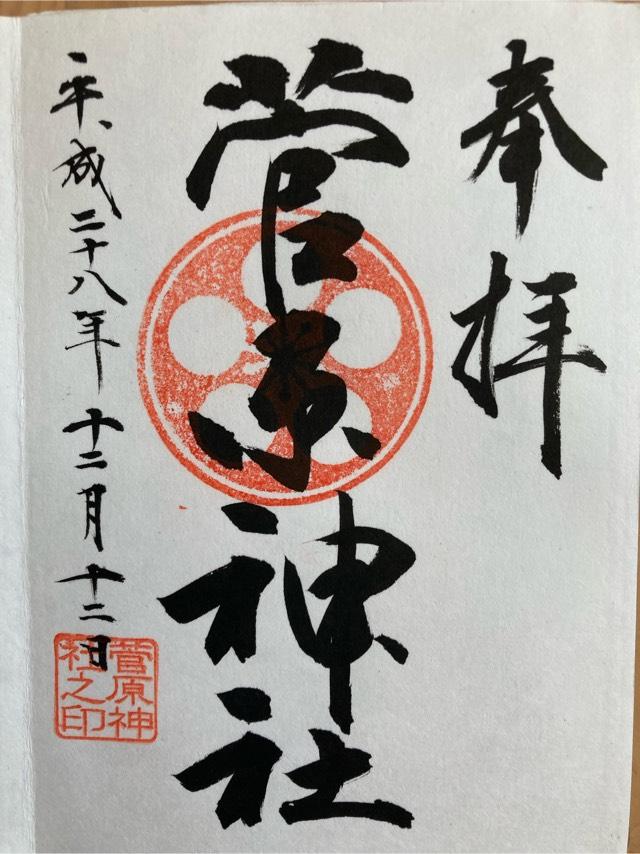 奉拝
菅原神社
平成二十八年十二月十二日
菅原神
社之印